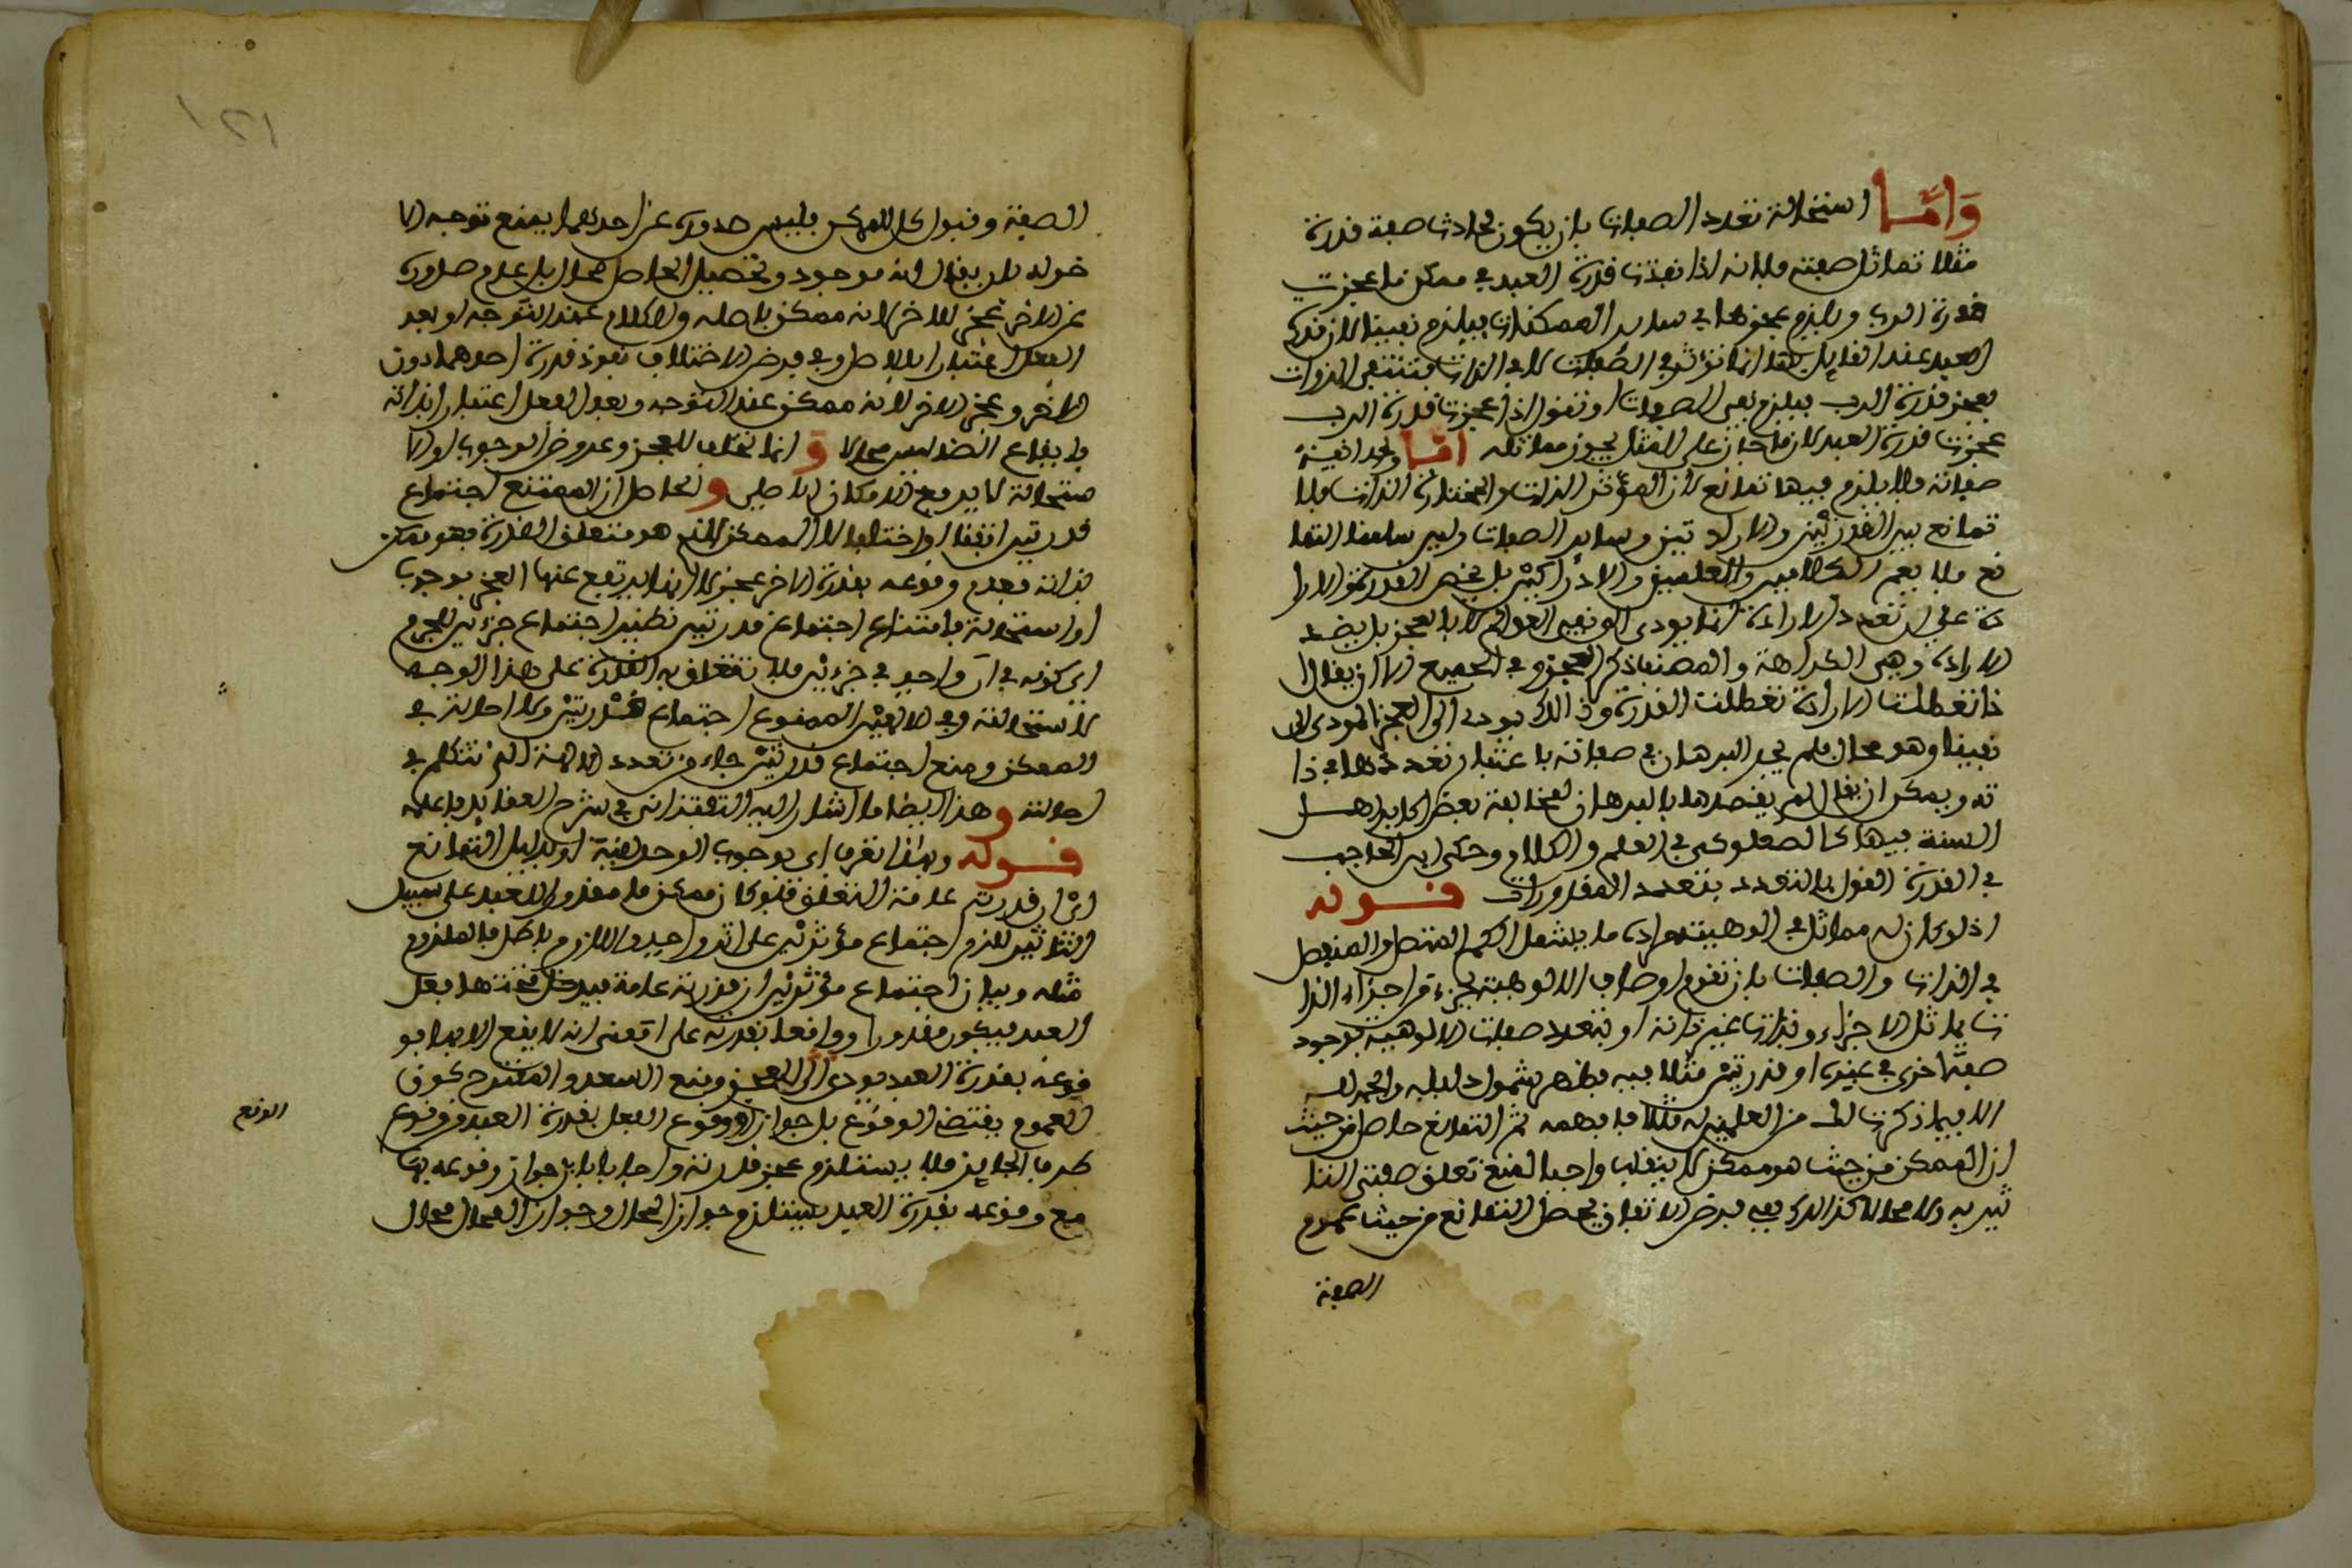 وَأمَّا استحالة تعدد الصفات بان يكون لحادث صفة قدرة
مثلا تماثل صفته فلانه اذا نفذت قدرة العبد في ممكن ما عجزت
قدرة الرب ويلزم عجزها في ساير الممكنات فيلزم نفيها لان قدرة
العبد عند القايل بها انما تؤثر في الصفات لا في الذات فتنتفي الذوات
بعجز قدرة الرب فيلزم نفي الصفات او نقول اذا عجزت قدرة الرب
عجزت قدرة العبد لان ما جاز على المثل يجوز مماثله امّا وحدانية
صفاته فلا يلزم فيها تمانع لان المؤثر الذات والمختار الذات فلا
تمانع بين القدرتين والارادتين وساير الصفات وليس سلمنا التما
نع فلا يعم الكلامين والعلمين والادراكين بل يخص القدرة والارا
دة على ان تعدد الارادة انما يودى الى نفي العوالم لا بالعجز بل بضد
الارادة وهي الكراهة والمصنف ذكر العجز في الجميع الا ان يقال ا
ذا تعطلت الارادة تعطلت القدرة وذالك يودى الى العجز المودى الى
نفيها وهو محال فلم يجر البرهان في صفاته باعتبار تعددها في ذا
ته ويمكن ان يقال لم يقصدها بالبرهان لمخالفة بعض اكابر اهل
السنة فيها كالصعلوكى في العلم والكلام وحكى ابن الحاجب
في القدرة القول بالتعدد بتعدد المقدورات قوله
اذ لو كان له مماثل في الوهيته اراد ما يشمل الكم المتصل والمنفصل
في الذات والصفات بان تقوم اوصاف الالوهية بجزء من اجزاء الذا
ت يماثل الاجزاء وبذات غير ذاته او بتعدد صفات الالوهية بوجود
صفة اخرى في غيره او قدرتين مثلا فيه فظهر شمول دليله والحمد لله
الا فيما ذكرت لك من العلمين له مثلا فافهمه ثم التمانع حاصل من حيث
ان الممكن من حيث هو ممكن لا ينقلب واجبا لمنع تعلق صفتى التا
ثير به ولا محالا كذالك ففي فرض الاتفاق يحصل التمانع من حيث عموم
الصفة
الصفة وقبول كل الممكن فليس صدوره عن احدهما يمنع توجه الا
خر له بان يقال انه موجود وتحصيل الحاصل محال بل عدم صدوره
عن الاخر عجز للاخر لانه ممكن باصله ولا كلام عند التوجه او بعد
الفعل اعتبارا بالاصل وفي فرض الاختلاف نفوذ قدرة احدهما دون
الاخر وعجز الاخر لانه ممكن عند التوجه وبعد الفعل اعتبارا بذاته
وايقاع الضد ليس محالا وَ انما يخلف للعجز وعروض الوجوب او الا
ستحالة لا يرفع الامكان الاصلى و الحاصل ان الممتنع اجتماع
قدرتين اتفقا او اختلفا لا الممكن الذى هو متعلق القدرة فهو ممكن
بذاته فعدم وقوعه بقدرة الاخر عجز لا انما يرتفع عنها العجز بوجوب
او استحالة فامتناع اجتماع قدرتين نظير اجتماع جزءين للجرم
اى كونه في آن واحد في جزءين فلا تتعلق به القدرة على هذا الوجه
لاستحالته وفي الالهين الممنوع اجتماع قدرتين ولا احالة في
الممكن ومنع اجتماع قدرتين جاء من تعدد الالهة الذى نتكلم في
احالته و هذا ايضا ما اشار اليه التفتزانى في شرح العقايد فاعلمه
قوله وبهذا تعرف اى بوجوب الوحدانية او بدليل التمانع
اى ان قدرته عامة التعلق فلو كان ممكن ما مقدورا للعبد على سبيل
التاثير للزم اجتماع مؤثرين على اثر واحد واللازم باطل فالملزوم
مثله وبيان اجتماع مؤثرين ان قدرته عامة فيدخل تحتها فعل
العبد فيكون مقدورا وواقعا بقدرته على معنى انه لا يقع الا بها فو
قوعه بقدرة العبد يودى الى العجز ومنع السعد والمقترح كون
العموم يقتضى الوقوع بل جوازه ووقوع الفعل بقدرة العبد من وقوع
طرف الجايز فلا يستلزم عجز قدرته واجابا بان جواز وقوعه بها
مع وقوعه بقدرة العبد يستلزم جواز المحال وجواز المحال محال
الوقع
١٢١